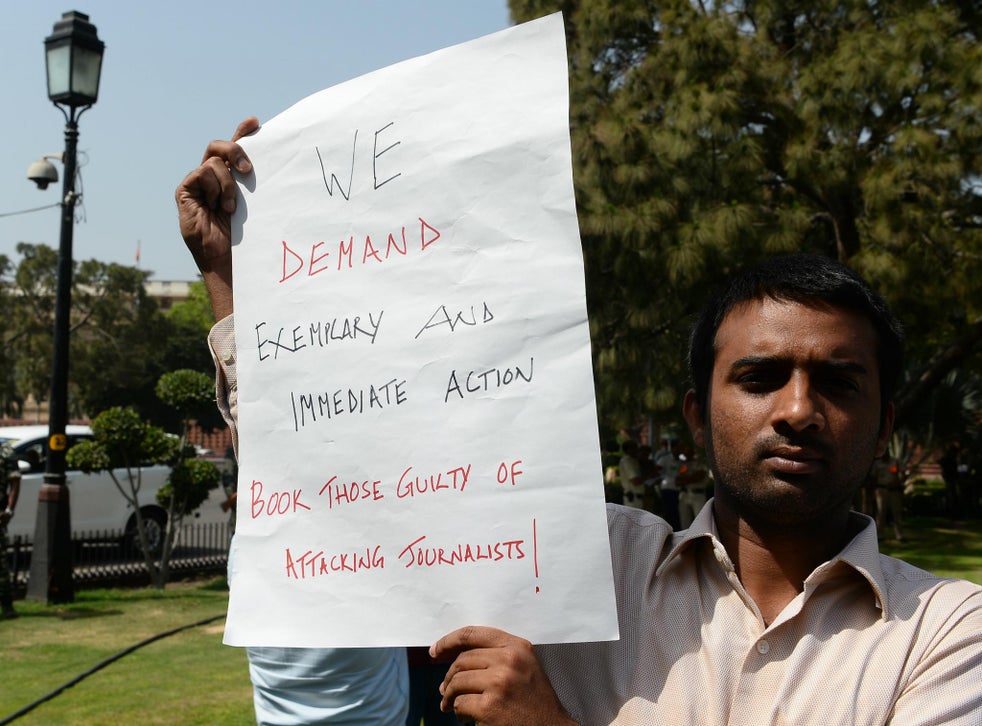 WE
DEMAND
EXEMPLARY AND
IMMEDIATE ACTION
BOOK THOSE GUILTY OF
ATTACKING JOURNALISTS!